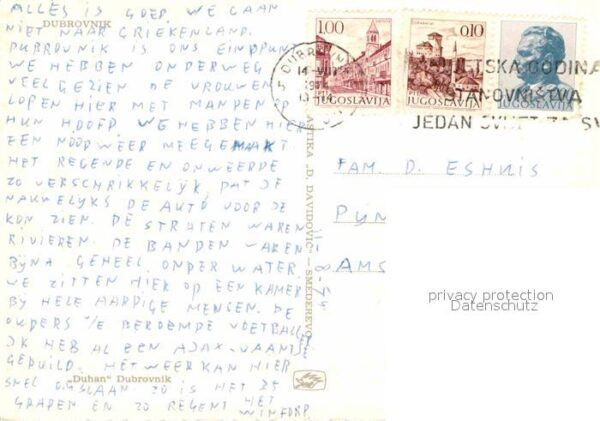 ALLES IS GOED WE GAAN
DUBROVNIK
NIET NAAR GRIEKENLAND.
DUBROVNIK IS ONS EINDPUNT
WE HEBBEN ONDERWEG
VEEL GEZIEN DE VROUWEN
LOPEN HIER MET MANDEN OP
HUN HOOFD WE HEBBEN HIER
EEN NOODWEER MEEGEMAAKT
HET REGENDE EN ONWEERDE
ZO VERSCHRIKKELIJK DAT JE
NAUWELIJKS DE AUTO VOOR JE
KON ZIEN. DE STRATEN WAREN
RIVIEREN. DE BANDEN WAREN
BIJNA GEHEEL ONDER WATER
WE ZITTEN HIER OP EEN KAMER
BIJ HELE AARDIGE MENSEN. DE
OUDERS V/E BEROEMDE VOETBALLER
IK HEB AL EEN AJAX-VAANTJE
GERUILD. HET WEER KAN HIER
„Duhan" Dubrovnik
SNEL OMSLAAN. ZO IS HET 25
GRADEN EN ZO REGENT HET
1.00
JUGOSLAVIJA
0.10
JUGOSLAVIJA
JUGOSLAVIJA
DUBROVNIK
14-VIII
GODINA
STANOVNIŠTVA
JEDAN SVET ZA SV
ASTRA „D. DAVIDOVIĆ" — SMEDEREVO
FAM. D. ESHUIS
PIJN
AMS
privacy protection
Datenschutz